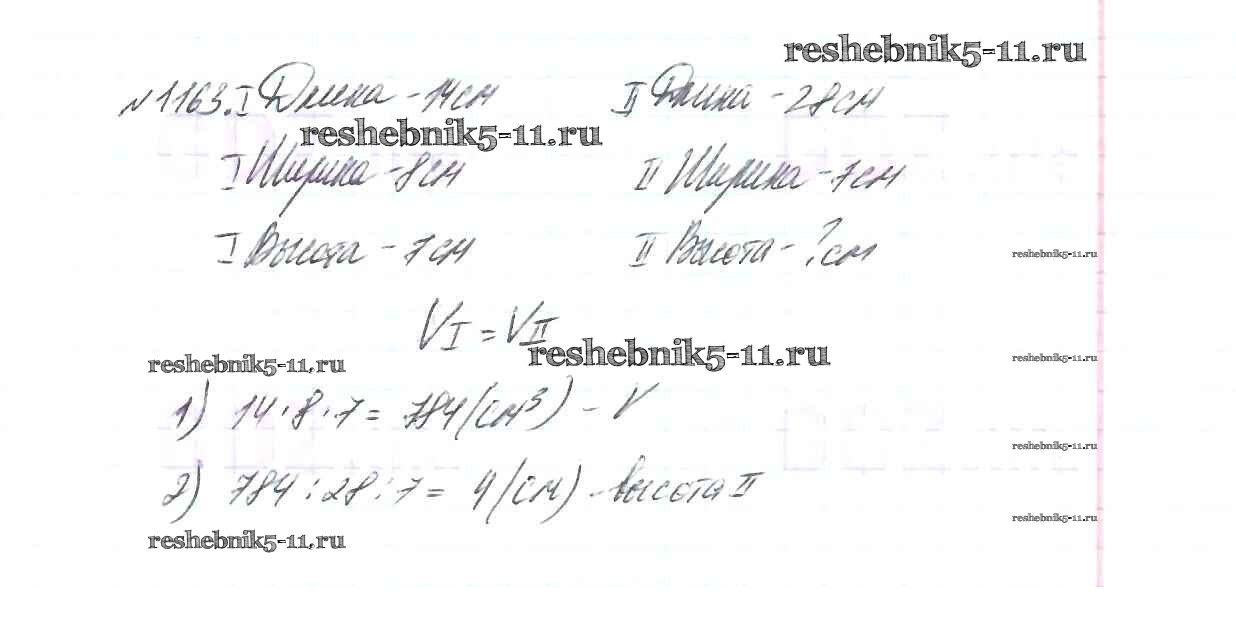 reshebnik5-11.ru
№1163. I Длина - 14см II Длина - 28см
reshebnik5-11.ru
I Ширина - 8см II Ширина - 7см
I Высота - 7см II Высота - ? см
reshebnik5-11.ru
VI = VII
reshebnik5-11.ru
reshebnik5-11.ru
reshebnik5-11.ru
1) 14·8·7= 784(см³) - V
reshebnik5-11.ru
2) 784:28:7= 4(см) - высота II
reshebnik5-11.ru
reshebnik5-11.ru